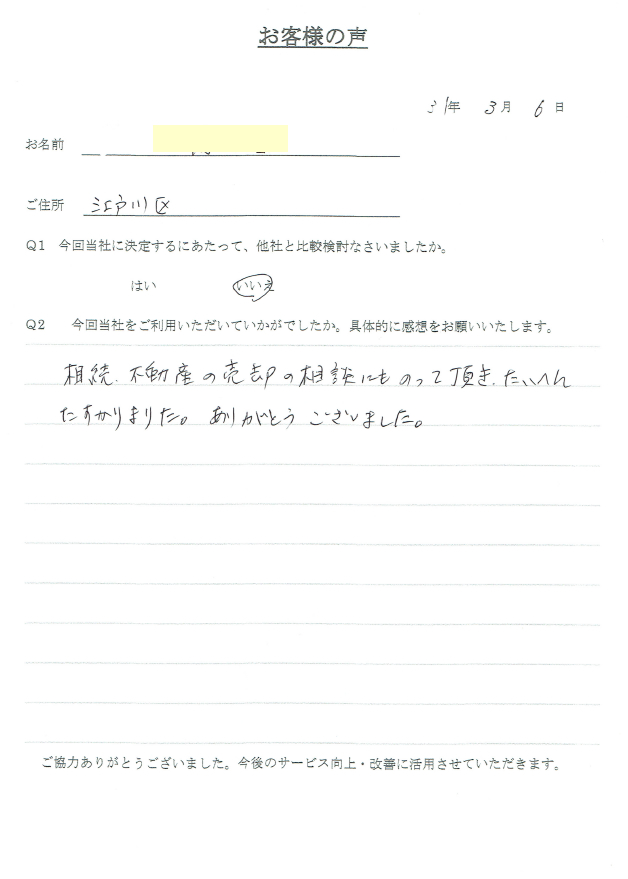 お客様の声
31年 3月 6日
お名前
ご住所 江戸川区
Q1 今回当社に決定するにあたって、他社と比較検討なさいましたか。
はい いいえ
Q2 今回当社をご利用いただいていかがでしたか。具体的に感想をお願いいたします。
相続、不動産の売却の相談にものって頂き、たいへん
たすかりました。ありがとうございました。
ご協力ありがとうございました。今後のサービス向上・改善に活用させていただきます。